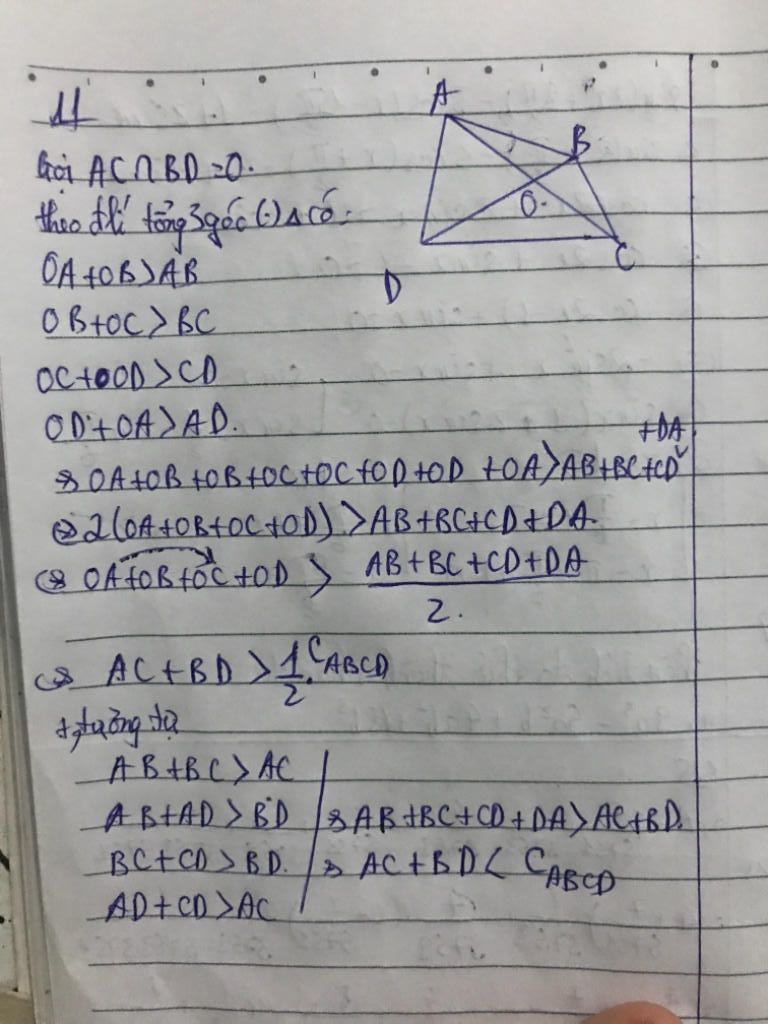 11
A
B
O.
C
D
Gọi AC∩BD=O.
theo đlí tổng 3 góc (.) Δ có:
OA+OB>AB
OB+OC>BC
OC+OD>CD
OD+OA>AD.
⇒ OA+OB+OB+OC+OC+OD+OD+OA>AB+BC+CD+DA
⇔ 2(OA+OB+OC+OD)>AB+BC+CD+DA.
⇔ OA+OB+OC+OD > \frac{AB+BC+CD+DA}{2}.
⇔ AC+BD > \frac{1}{2}.C_{ABCD}
+, tương tự
AB+BC>AC
AB+AD>BD ⇒ AB+BC+CD+DA>AC+BD.
BC+CD>BD. ⇒ AC+BD< C_{ABCD}
AD+CD>AC